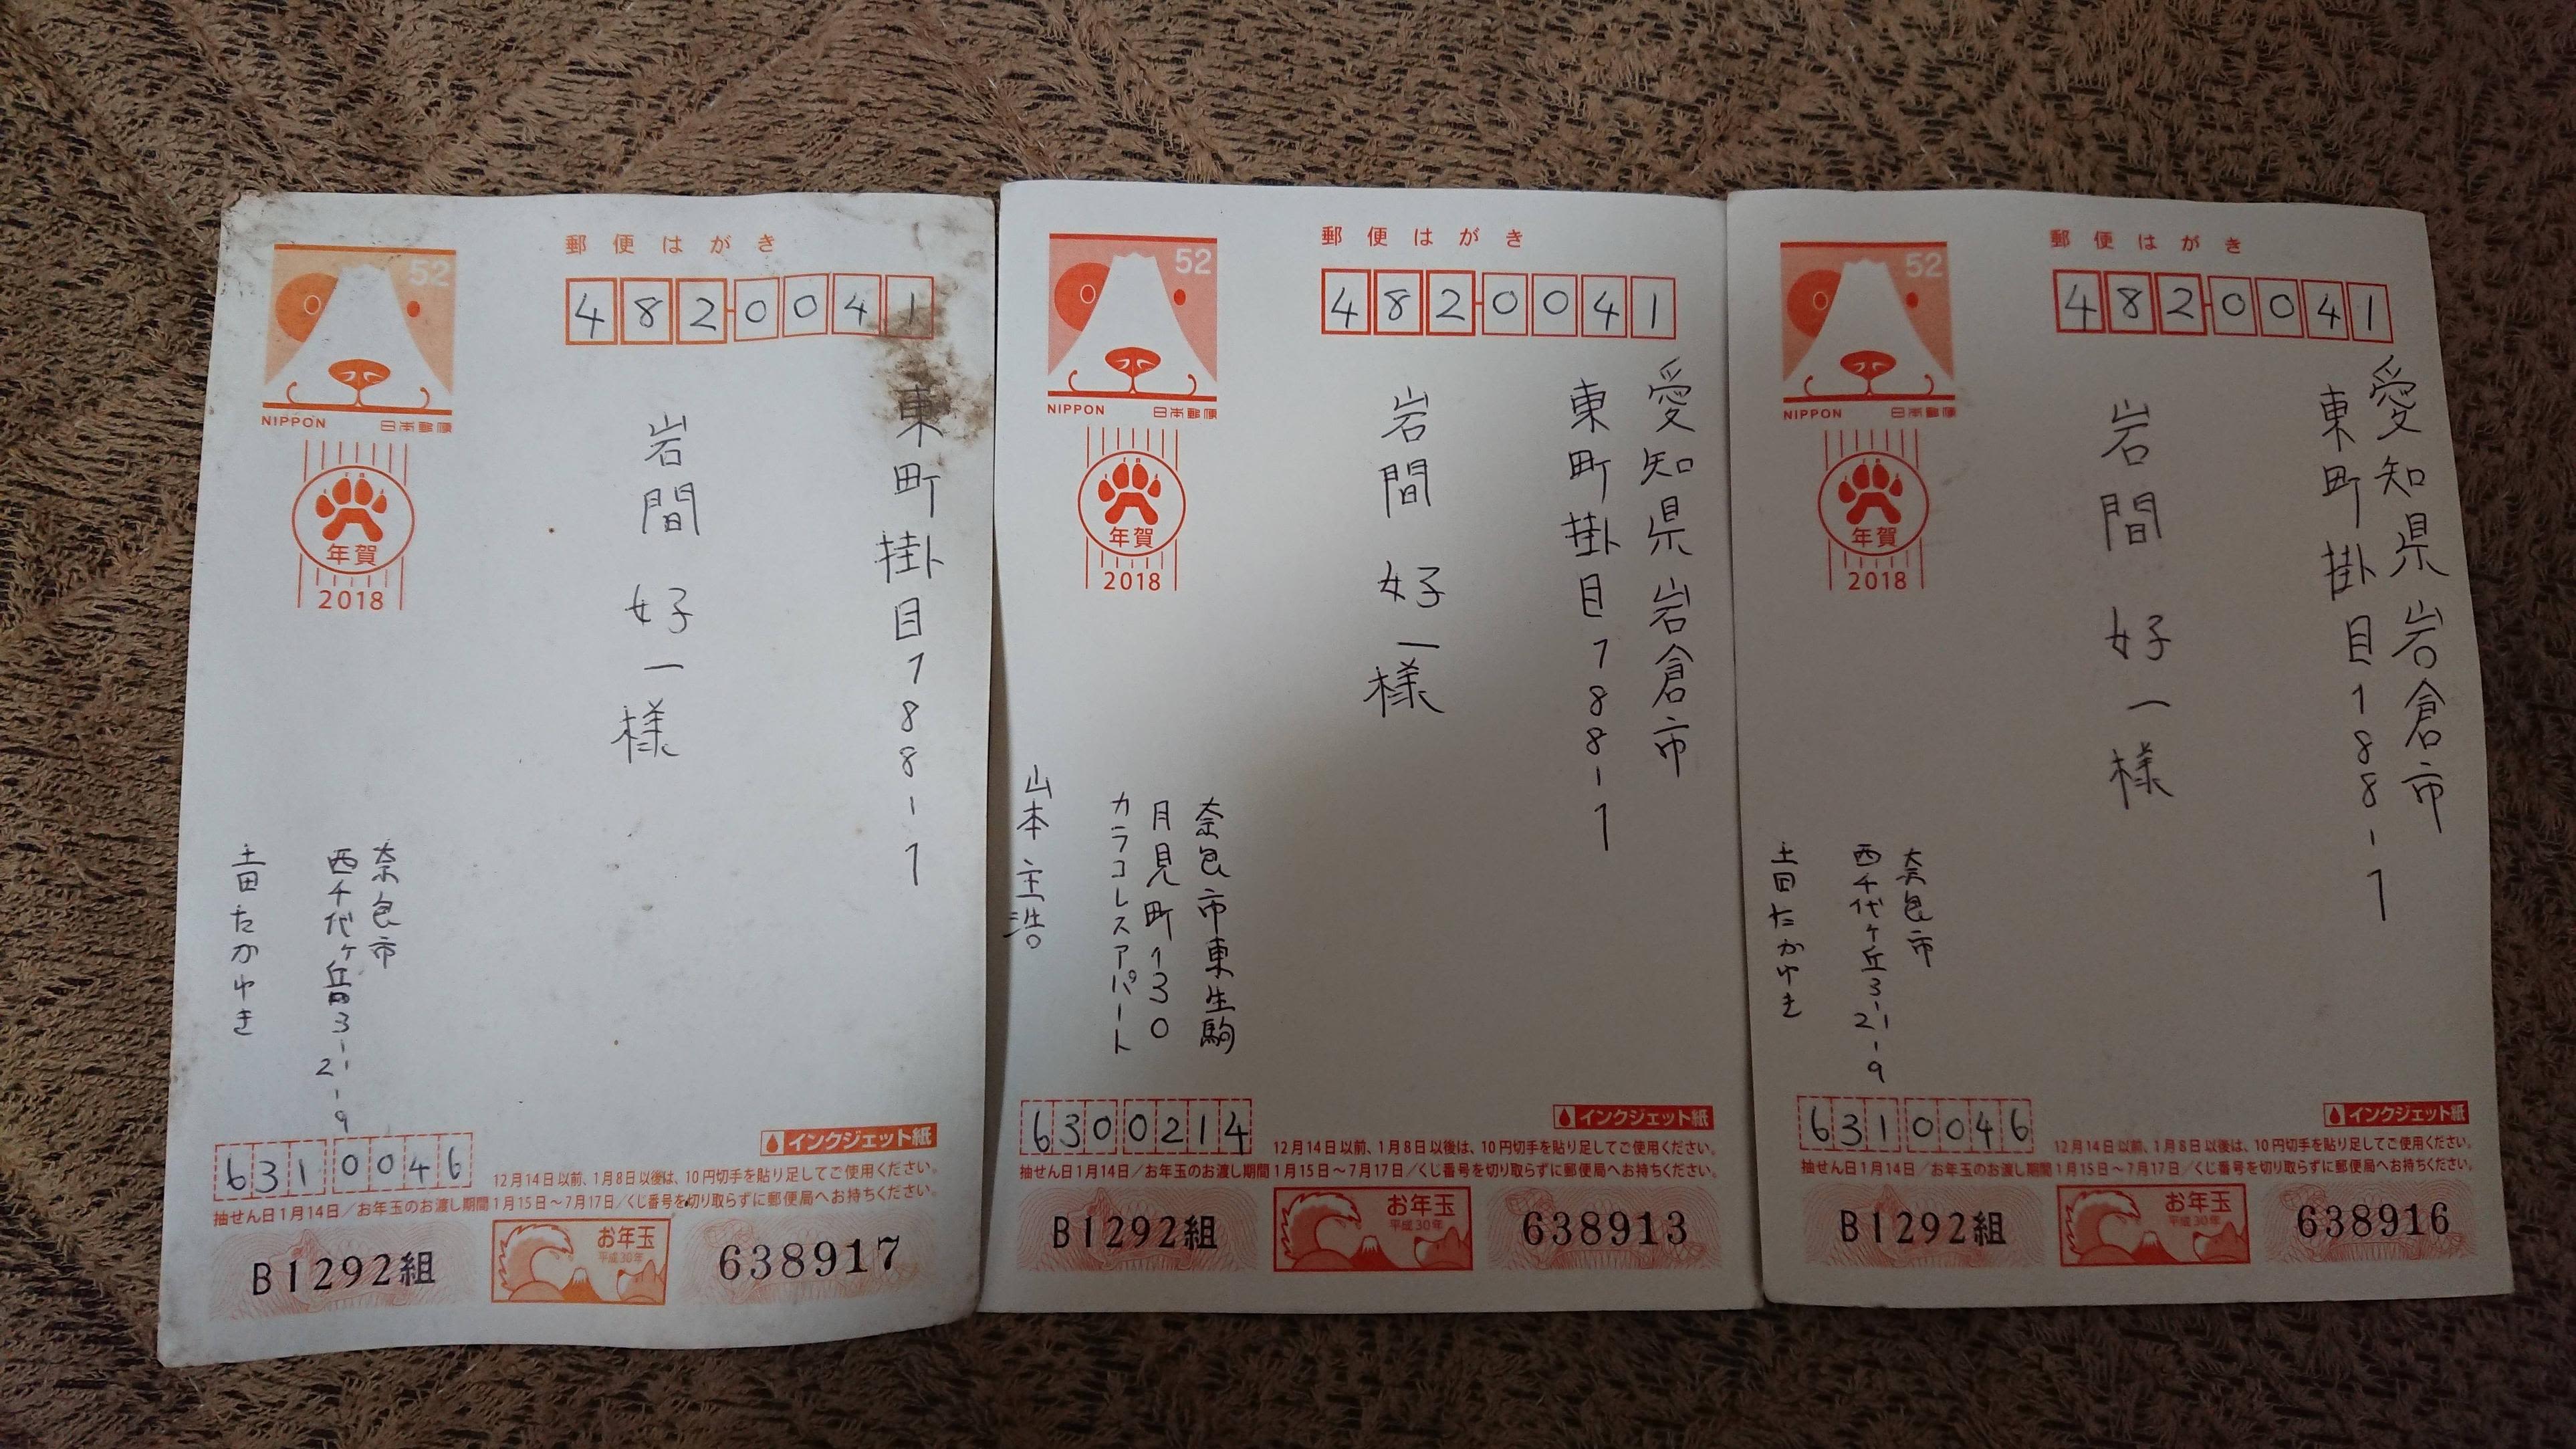 52
NIPPON 日本郵便
年賀
2018
郵便はがき
4820041
東町掛目188-1
岩間好一様
奈良市
西千代ケ丘3-21-9
土田たかゆき
6310046
インクジェット紙
12月14日以前、1月8日以後は、10円切手を貼り足してご使用ください。
抽せん日1月14日/お年玉のお渡し期間1月15日~7月17日/くじ番号を切り取らずに郵便局へお持ちください。
B1292組
お年玉
平成30年
638917
52
NIPPON 日本郵便
年賀
2018
郵便はがき
4820041
愛知県岩倉市
東町掛目188-1
岩間好一様
奈良市東生駒
月見町130
カラコレスアパート
山本圭浩
6300214
インクジェット紙
12月14日以前、1月8日以後は、10円切手を貼り足してご使用ください。
抽せん日1月14日/お年玉のお渡し期間1月15日~7月17日/くじ番号を切り取らずに郵便局へお持ちください。
B1292組
お年玉
平成30年
638913
52
NIPPON 日本郵便
年賀
2018
郵便はがき
4820041
愛知県岩倉市
東町掛目188-1
岩間好一様
奈良市
西千代ケ丘3-21-9
土田たかゆき
6310046
インクジェット紙
12月14日以前、1月8日以後は、10円切手を貼り足してご使用ください。
抽せん日1月14日/お年玉のお渡し期間1月15日~7月17日/くじ番号を切り取らずに郵便局へお持ちください。
B1292組
お年玉
平成30年
638916